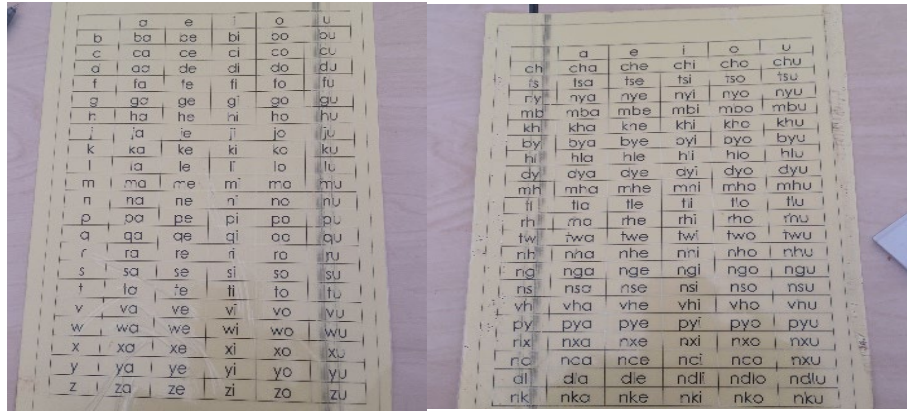 a e i o u
b ba be bi bo bu
c ca ce ci co cu
d da de di do du
f fa fe fi fo fu
g ga ge gi go gu
h ha he hi ho hu
j ja je ji jo ju
k ka ke ki ko ku
l la le li lo lu
m ma me mi mo mu
n na ne ni no nu
p pa pe pi po pu
q qa qe qi qo qu
r ra re ri ro ru
s sa se si so su
t ta te ti to tu
v va ve vi vo vu
w wa we wi wo wu
x xa xe xi xo xu
y ya ye yi yo yu
z za ze zi zo zu
a e i o u
ch cha che chi cho chu
ts tsa tse tsi tso tsu
ny nya nye nyi nyo nyu
mb mba mbe mbi mbo mbu
kh kha khe khi kho khu
by bya bye byi byo byu
hl hla hle hli hlo hlu
dy dya dye dyi dyo dyu
mh mha mhe mhi mho mhu
tl tla tle tli tlo tlu
rh rha rhe rhi rho rhu
tw twa twe twi two twu
nh nha nhe nhi nho nhu
ng nga nge ngi ngo ngu
ns nsa nse nsi nso nsu
vh vha vhe vhi vho vhu
py pya pye pyi pyo pyu
nx nxa nxe nxi nxo nxu
nc nca nce nci nco nxu
dl dla dle ndli ndlo ndlu
nk nka nke nki nko nku